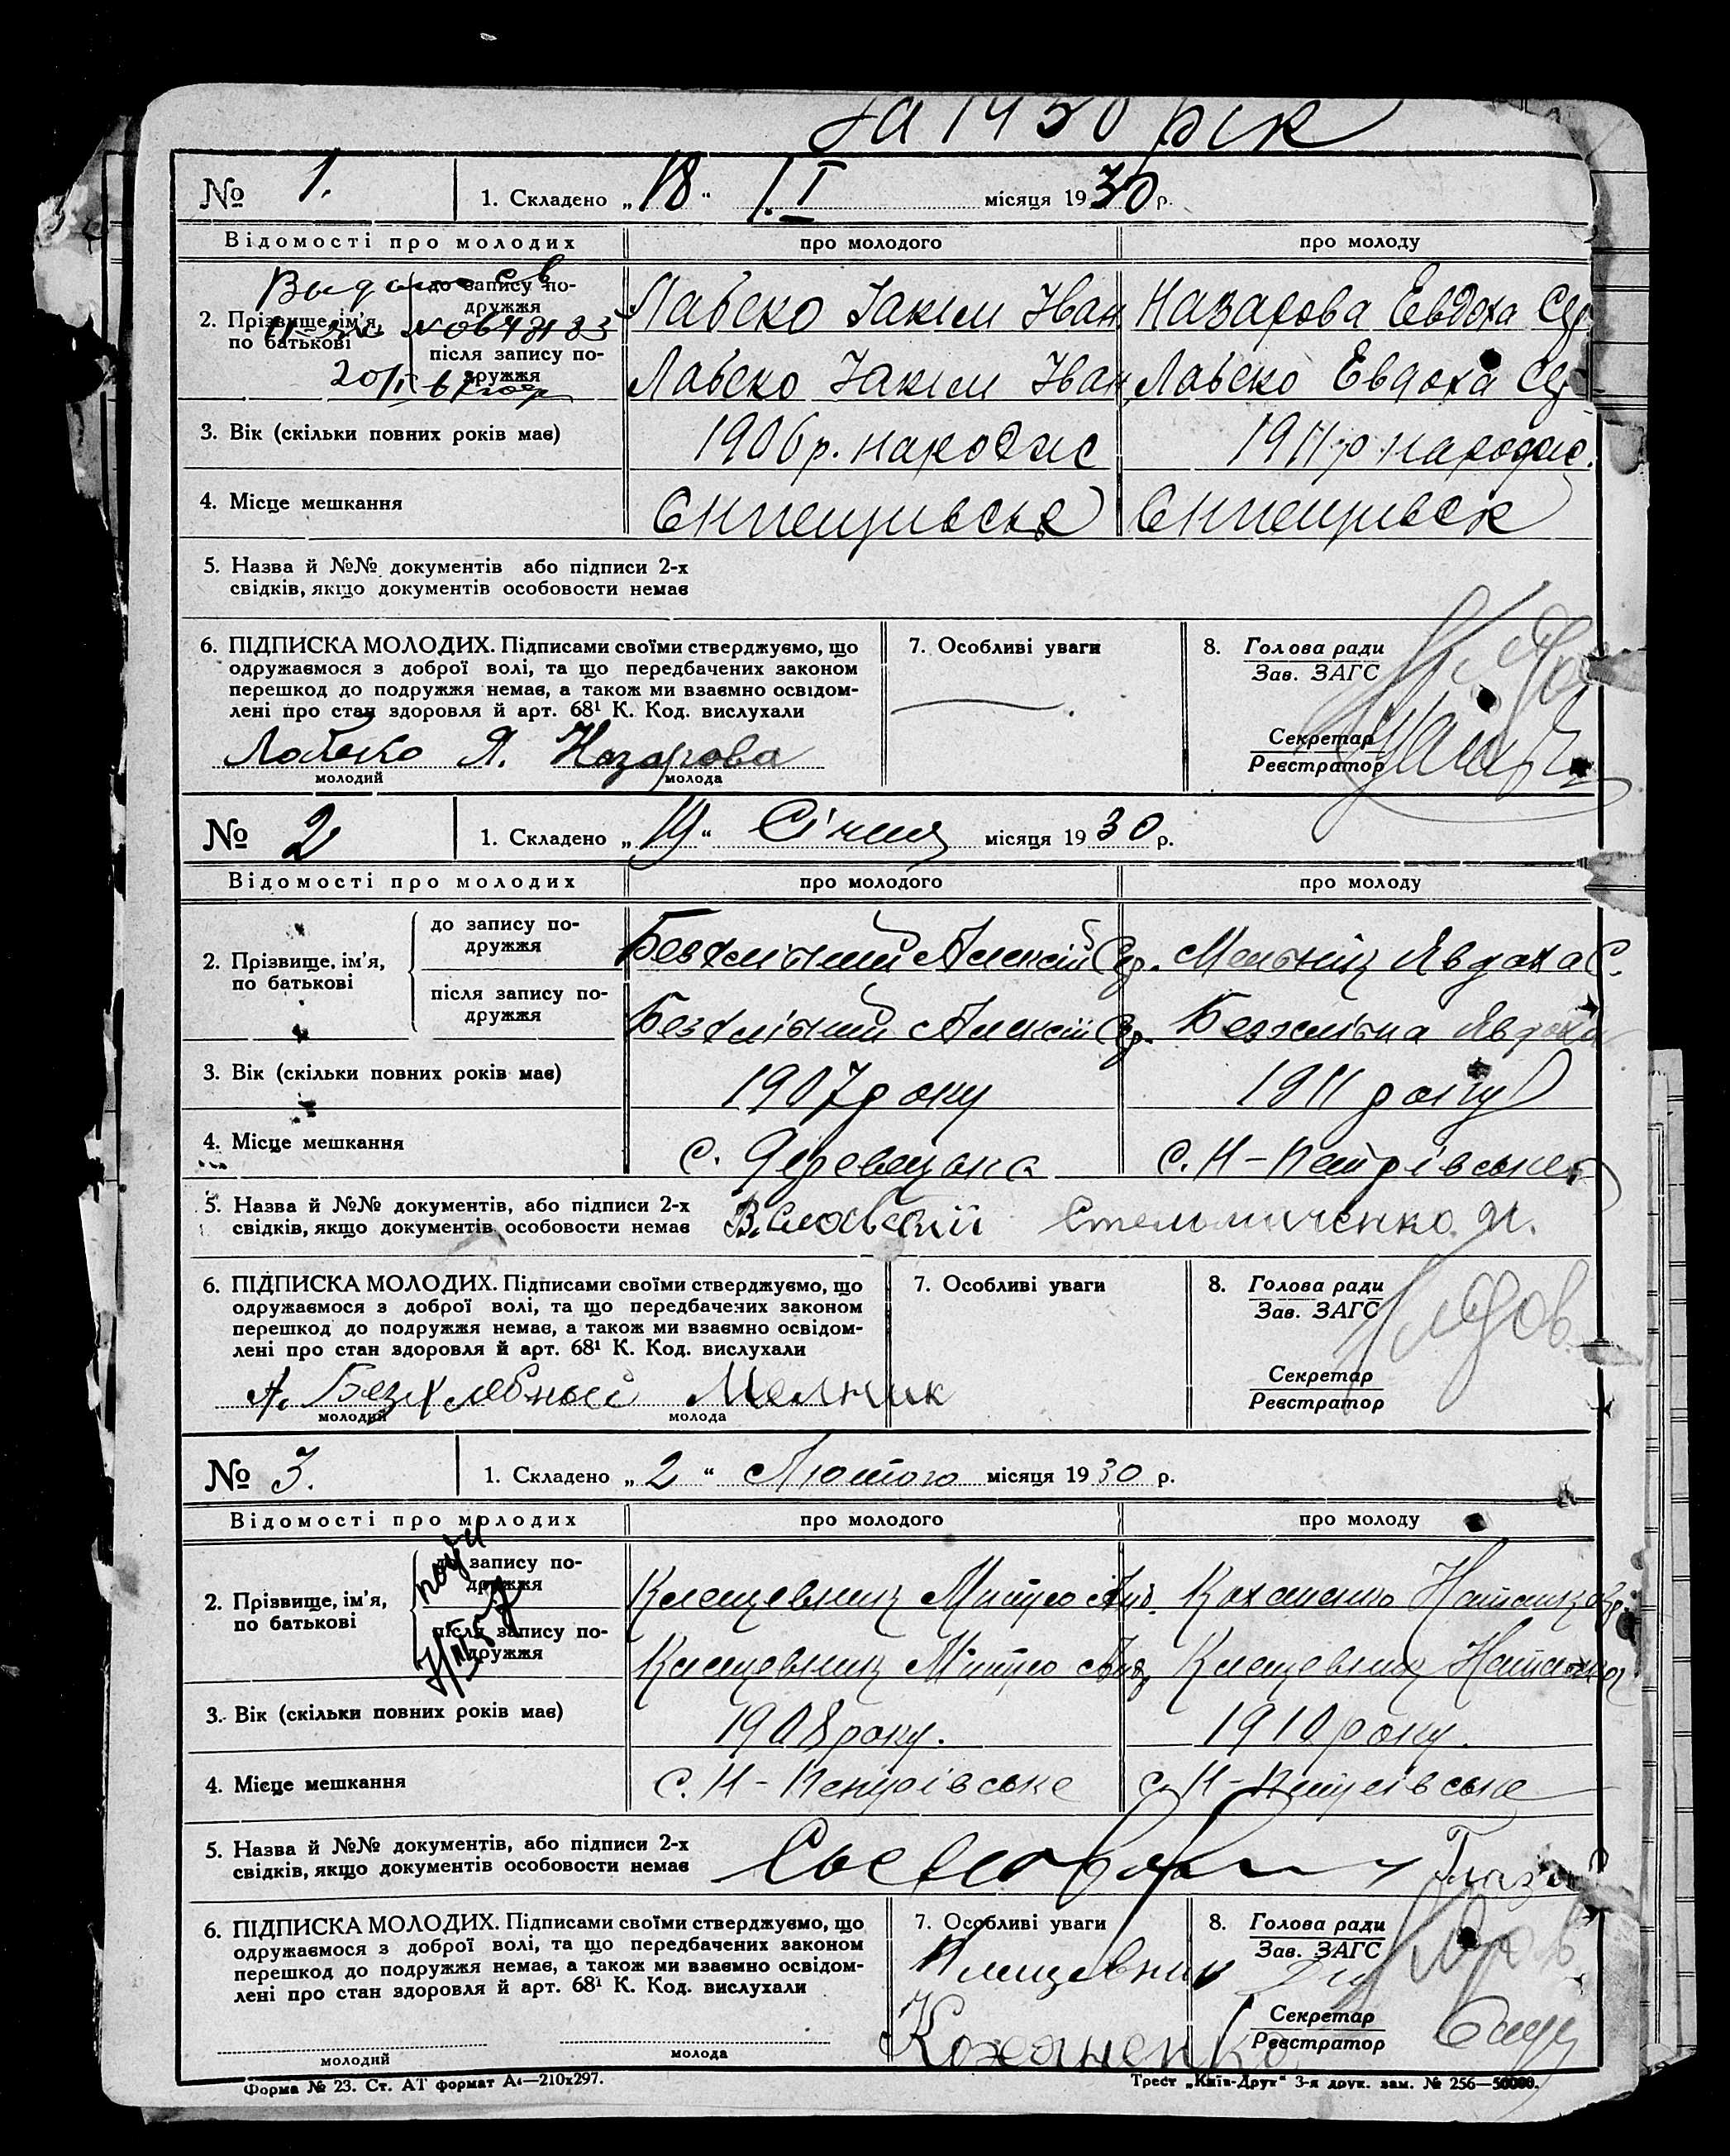 На 1930 рік
№ 1. 1. Складено „18“ I. I місяця 1930 р.
Відомості про молодих про молодого про молоду
до запису подружжя
2. Прізвище, ім'я, по батькові
Лабєко Іаким Іван Назарова Евдоха
після запису подружжя
Лабєко Іаким Іван Лабєко Евдоха
3. Вік (скільки повних років має) 1906 р. народже 1911 р. народже.
4. Місце мешкання
5. Назва й №№ документів або підписи 2-х
свідків, якщо документів особовости немає
6. ПІДПИСКА МОЛОДИХ. Підписами своїми стверджуємо, що
одружаємося з доброї волі, та що передбачених законом
перешкод до подружжя немає, а також ми взаємно освідом-
лені про стан здоровля й арт. 68¹ К. Код. вислухали
7. Особливі уваги
8. Голова ради
Зав. ЗАГС
Секретар
Реєстратор
Лабеко Я. Назарова
молодий молода
№ 2 1. Складено „19“ Січня місяця 1930 р.
Відомості про молодих про молодого про молоду
до запису по-
дружжя
2. Прізвище, ім'я,
по батькові
Безхлібний Алексій Мельник Явдоха С.
після запису по-
дружжя
Безхлібний Алексій Безхлібна Явдоха
3. Вік (скільки повних років має) 1907 року 1911 року
4. Місце мешкання с. с. Н-Петрівське
5. Назва й №№ документів, або підписи 2-х
свідків, якщо документів особовости немає
6. ПІДПИСКА МОЛОДИХ. Підписами своїми стверджуємо, що
одружаємося з доброї волі, та що передбачених законом
перешкод до подружжя немає, а також ми взаємно освідом-
лені про стан здоровля й арт. 68¹ К. Код. вислухали
7. Особливі уваги
8. Голова ради
Зав. ЗАГС
Секретар
Реєстратор
А. Безхлебный Мелник
молодий молода
№ 3. 1. Складено „2“ Лютого місяця 1930 р.
Відомості про молодих про молодого про молоду
до запису по-
дружжя
2. Прізвище, ім'я,
по батькові
Клещевник Митро Анд. Коханенко Наталка
після запису по-
дружжя
Клещевник Митро Анд. Клещевник Наталка
3. Вік (скільки повних років має) 1908 року. 1910 року.
4. Місце мешкання с. Н-Петрівське с. Н-Петрівське
5. Назва й №№ документів, або підписи 2-х
свідків, якщо документів особовости немає
6. ПІДПИСКА МОЛОДИХ. Підписами своїми стверджуємо, що
одружаємося з доброї волі, та що передбачених законом
перешкод до подружжя немає, а також ми взаємно освідом-
лені про стан здоровля й арт. 68¹ К. Код. вислухали
7. Особливі уваги
Коханенко
8. Голова ради
Зав. ЗАГС
Секретар
Реєстратор
молодий молода
Форма № 23. Ст. АТ формат А₄—210x297. Трест „Київ-Друк“ 3-я друк. зам. № 256—50000.